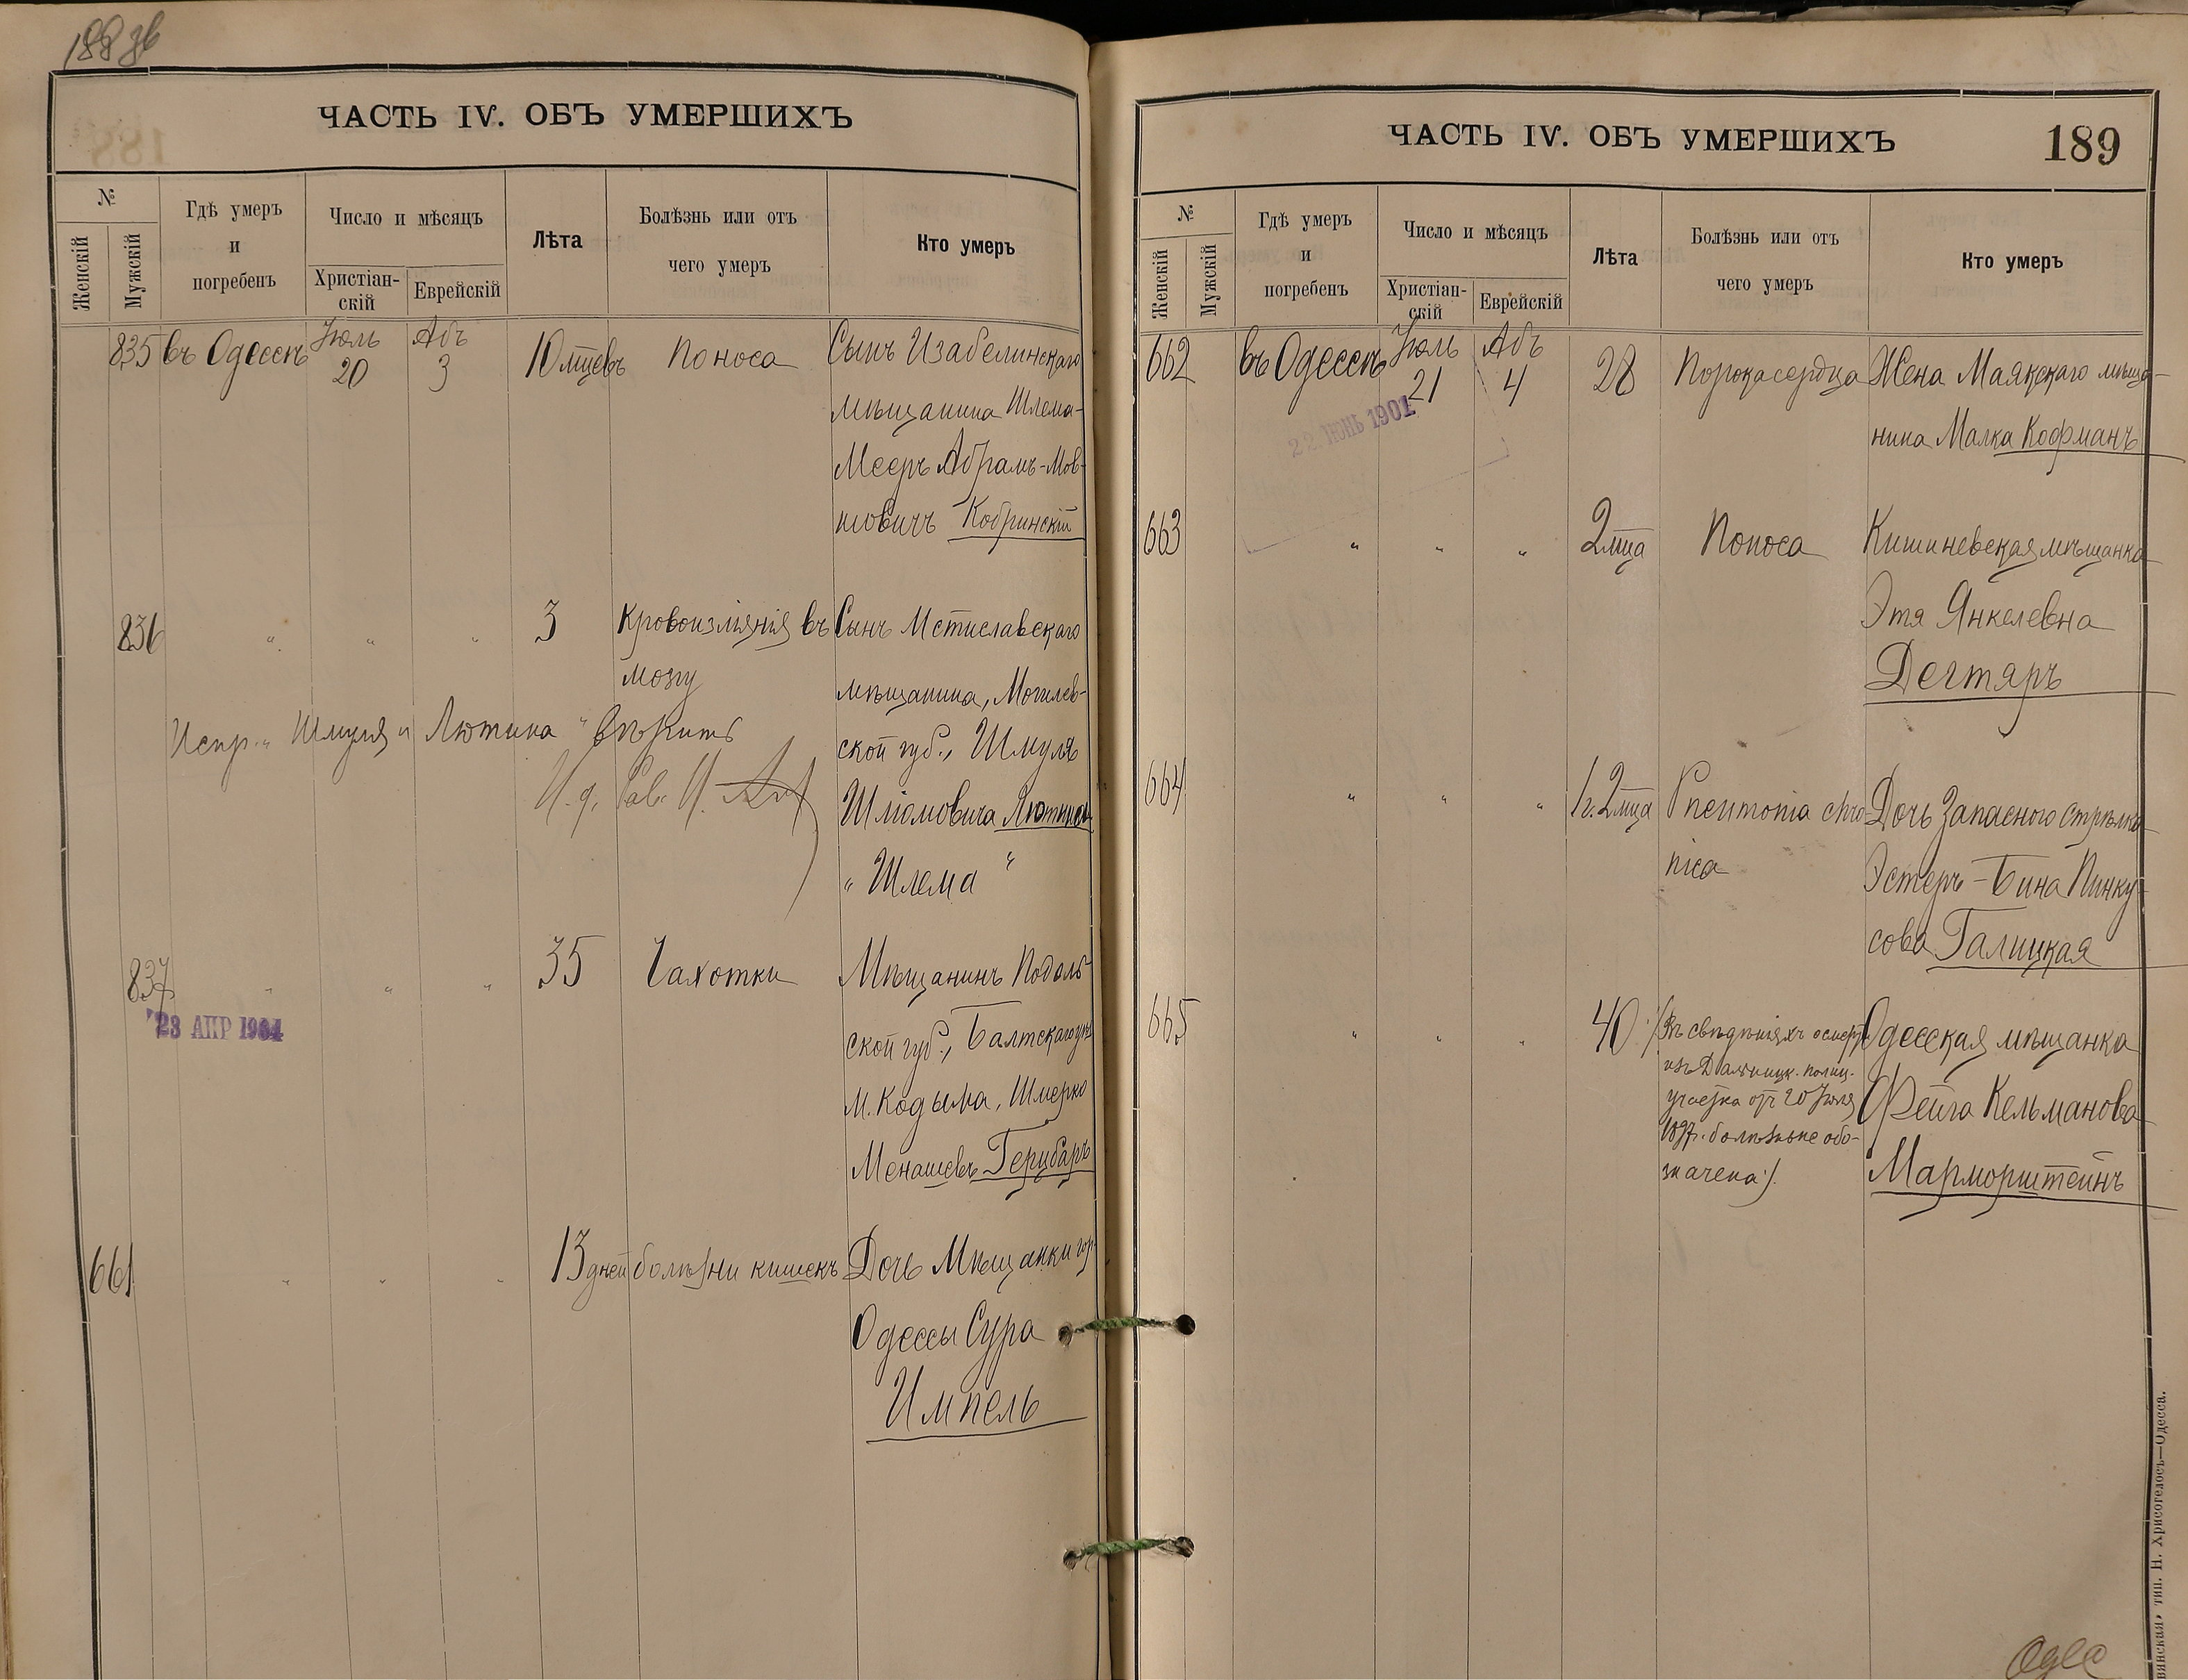 188 об
ЧАСТЬ IV. ОБЪ УМЕРШИХЪ
№
Женскій
Мужскій
Гдѣ умеръ
и
погребенъ
Число и мѣсяцъ
Христіан-
скій
Еврейскій
Лѣта
Болѣзнь или отъ
чего умеръ
Кто умеръ
835 въ Одессѣ Іюль 20 Абъ 3 10 мцевъ Поноса Сынъ Изабелинскаго
мѣщанина Шлема-
Мееръ Абрамъ-Мов-
шовичъ Кобринскій
836 " " " 3 Кровоизліянія въ Сынъ Мстиславскаго
мозгу мѣщанина, Могилев-
ской губ., Шмуля
Испр. " Шмуля " Лютина " вѣрить
И. д. Рав. И.
Шліомовича Лютина
" Шлема "
837 " " " 35 Чахотки Мѣщанинъ Подоль-
23 АПР 1904
ской губ., Балтскаго у.
м. Кодыма, Шмерко
Менашевъ Герцбаръ
661 " " " 13 дней болѣзни кишекъ Дочь Мѣщанки гор.
Одессы Сура
Импель
ЧАСТЬ IV. ОБЪ УМЕРШИХЪ
189
№
Женскій
Мужскій
Гдѣ умеръ
и
погребенъ
Число и мѣсяцъ
Христіан-
скій
Еврейскій
Лѣта
Болѣзнь или отъ
чего умеръ
Кто умеръ
662 въ Одессѣ Іюль 21 Абъ 4 28 Порока сердца Жена Маякскаго мѣща-
22 ІЮНЬ 1901
нина Малка Кофманъ
663 " " " 2 мца Поноса Кишиневская мѣщанка
Этя Янкелевна
Дегтяръ
664 " " " 1 г. 2 мца Pneumonia chro- Дочь Запасного стрѣлка
nica Эстеръ-Бина Пинку-
сова Галицкая
665 " " " 40 /:Въ свѣдѣніяхъ о смерт. Одесская мѣщанка
изъ Дальницк. полиц.
участка отъ 20 Іюля Фейга Кельманова
1897 г. болѣзнь не обо-
значена:/ Марморштейнъ
тип. Н. Хрисогелосъ—Одесса.
Одес